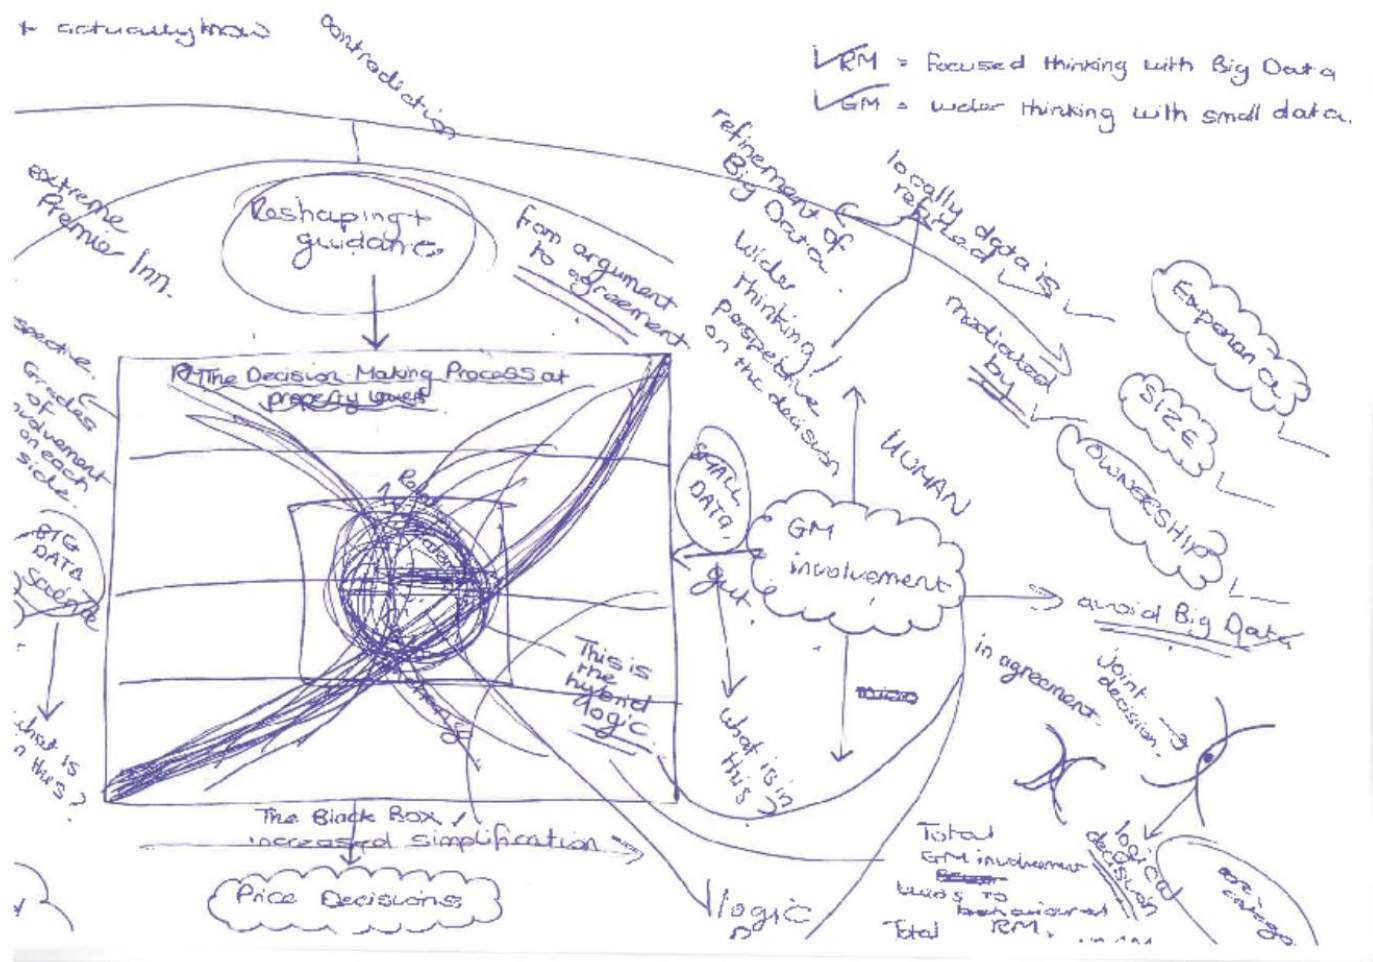 + actually know
contradiction
RM = focused thinking with Big Data
GM = wider thinking with small data.
extreme
Premier Inn.
Reshaping +
guidance
from argument
to agreement
refinement of
Big Data
wider
thinking /
perspective
on the decision
locally data is
mediated
by
SIZE
OWNERSHIP
spective.
Grades
of
nvolvement
on each
side.
BIG
DATA
Science
what is
n this?
RM The Decision Making Process at
property level
This is
the
hybrid
logic.
SMALL
DATA.
gut.
what is in
this?
HUMAN
GM
involvement
avoid Big Data
in agreement.
joint
decision.
logical
decision
The Black Box /
increased simplification
Price Decisions
logic
Total
GM involvement
leads to
behavioural
Total RM.